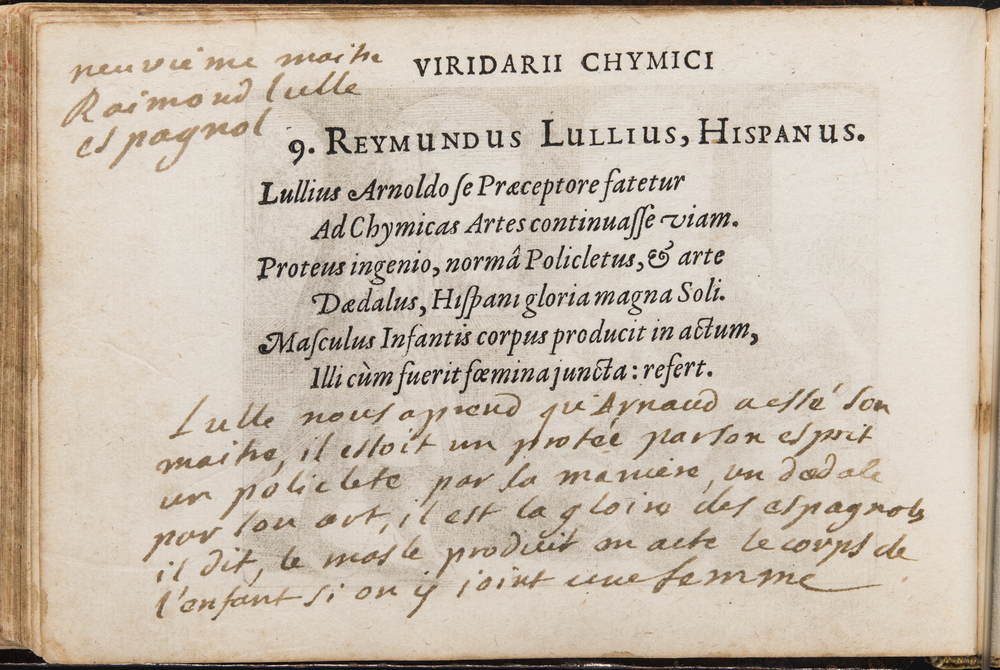 neuvieme maitre
Raimond lulle
espagnol
VIRIDARII CHYMICI
9. REYMUNDUS LULLIUS, HISPANUS.
Lullius Arnoldo ſe Præceptore fatetur
Ad Chymicas Artes continuaſſe viam.
Proteus ingenio, normâ Policletus, & arte
Dædalus, Hiſpani gloria magna Soli.
Maſculus Infantis corpus producit in actum,
Illi cùm fuerit fœmina juncta: refert.
Lulle nous aprend qu'Arnaud a esté son
maitre, il estoit un protée par son esprit
un policlete par sa maniere, un dædale
par son art, il est la gloire des espagnols
il dit, le masle produit en acte le corps de
l'enfant si on y joint une femme